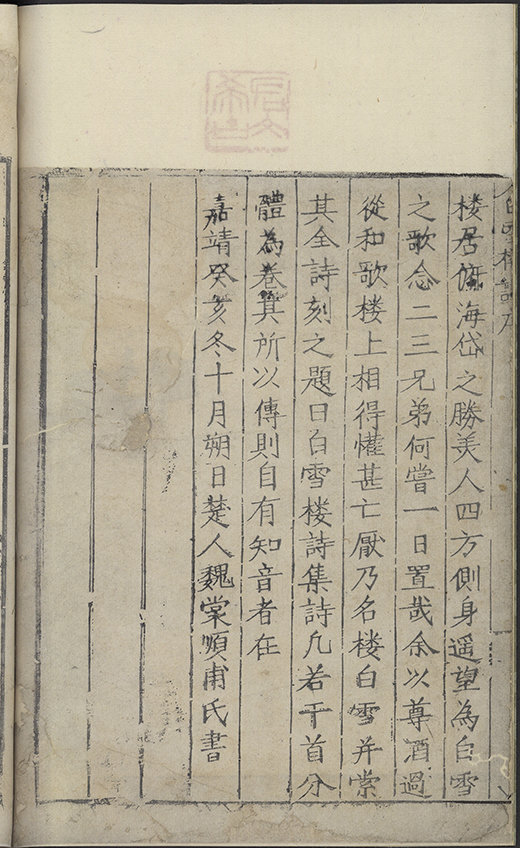 白雪楼詩序
楼居㑹海岱之勝美人四方側身遥望為白雪
之歌念二三兄弟何嘗一日置哉余以尊酒過
從和歌楼上相得懽甚亡厭乃名楼白雪并裳
其全詩刻之題曰白雪楼詩集詩凡若干首分
體為卷其所以傳則自有知音者在
嘉靖癸亥冬十月朔日楚人魏裳順甫氏書